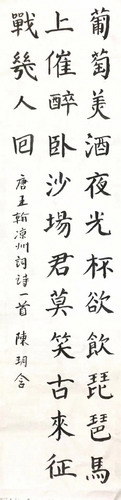 葡萄美酒夜光杯欲飲琵琶馬
上催醉卧沙場君莫笑古來征
戰幾人回 唐王翰凉州詞詩一首 陳玥含